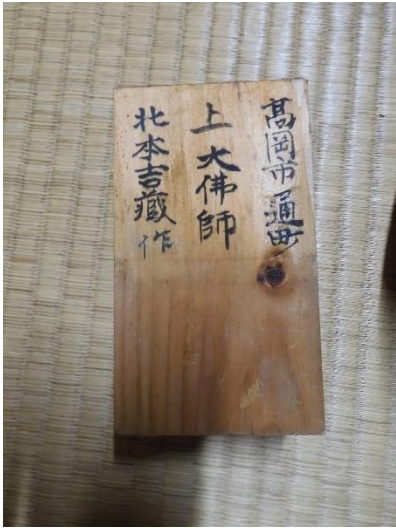 髙岡市通町
上大佛師
北本吉藏作